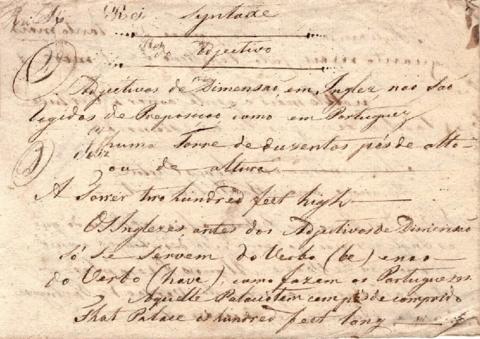 Syntaxe
Adjectivo
Adjectivos de Dimensão em Inglez não são
regidos de Preposição como em Portuguez
huma Torre de duzentos pés de alto
ou de altura
A Tower two hundred feet high
Os Inglezes antes dos Adjectivos de Dimensão
só se servem do Verbo (be) e não
do Verbo (have), como fazem os Portuguezes
Aquelle Palacio tem cem pés de comprido
That Palace is hundred feet long